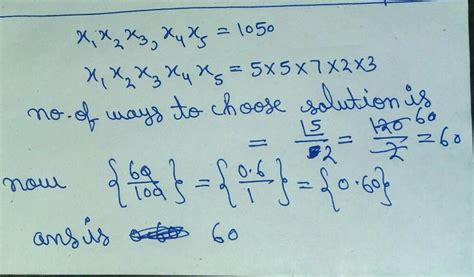 x₁x₂x₃,x₄x₅ = 1050
x₁x₂x₃x₄x₅ = 5×5×7×2×3
no. of ways to choose solution is
= 15/2 = 120/2 = 60
now {60/100} = {0.6/1} = {0.60}
ans is 60